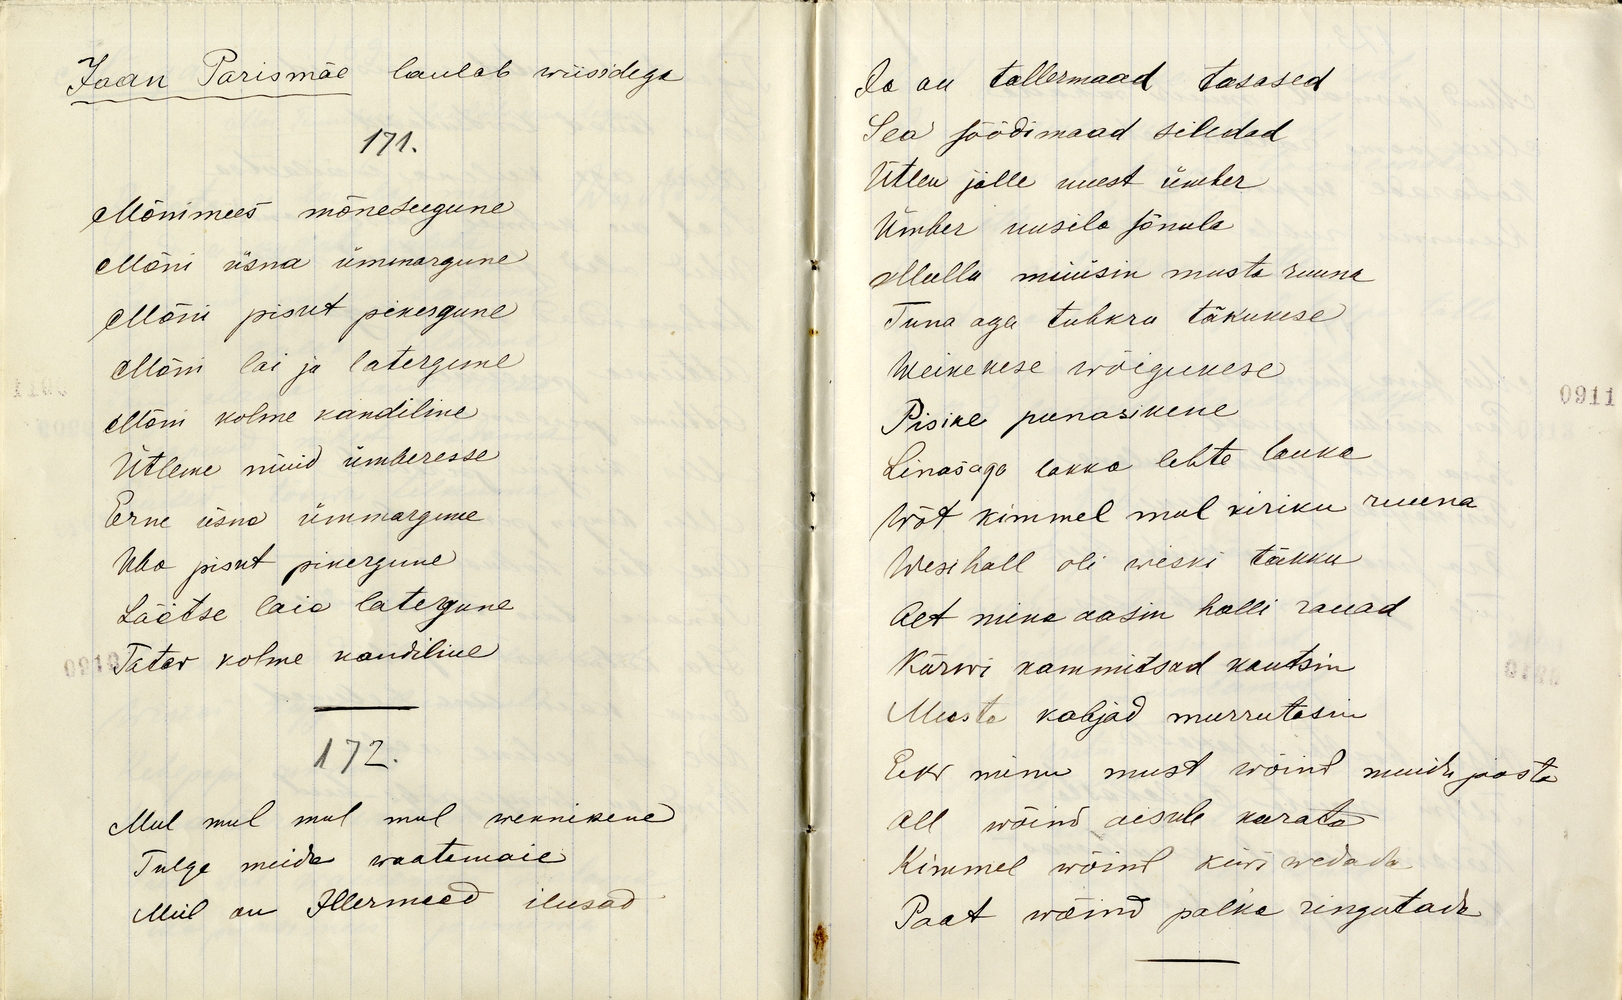 Jaan Parismäe laulab wiisidega
171.
Mõnimees mõnesugune
Mõni üsna ümmargune
Mõni pisut pikergune
Mõni lai ja latergune
Mõni kolme kandiline
Ütleme nüüd ümberesse
Erne üsna ümmargune
Uba pisut pikergune
Läätse laia latergune
Tatar kolme kandiline
172.
Mul mul mul mul wennikene
Tulge meida waatamaie
Meil on Illermaad ilusad
Ja on tallermaad tasased
Sea söödimaad siledad
Ütlen jälle uuest ümber
Ümber uusila sõnula
Mulla müüsin musta ruuna
Tuna aga tuhkru täkukese
Weikekese wõigukese
Pisike punasikene
Linasaga lakka lehte lauka
Wõt kimmel mul kiriku ruuna
Wesihall oli weski täkku
Aet mina aasin halli rauad
Kärwi kammitsad kautsin
Musta kabjad murrutasin
Eekr minu must wõind muida joosta
All wõind aisule karata
Kimmel wõind kiwi wedada
Paat wõind palka ringutada
0911
0910